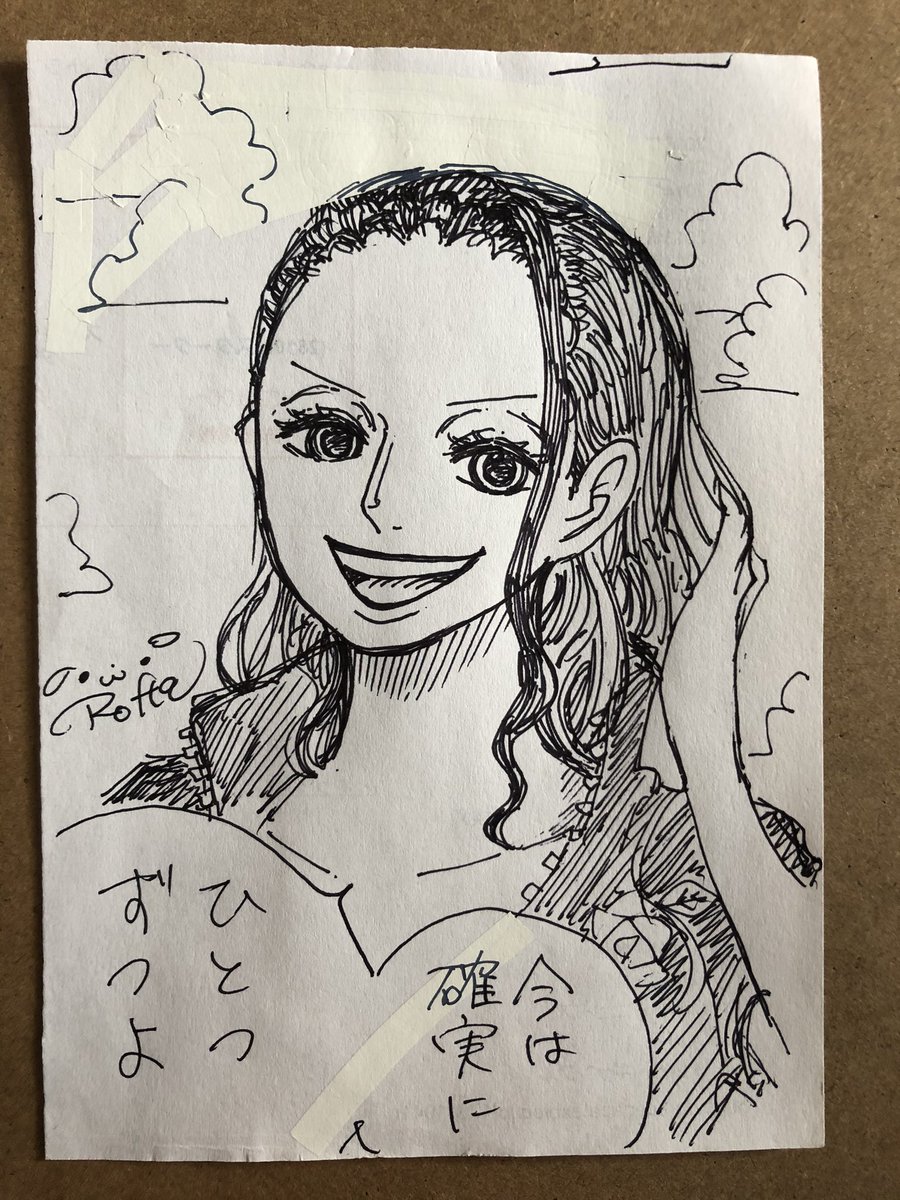 今は
確実に
ひとつ
ずつよ
Rofta